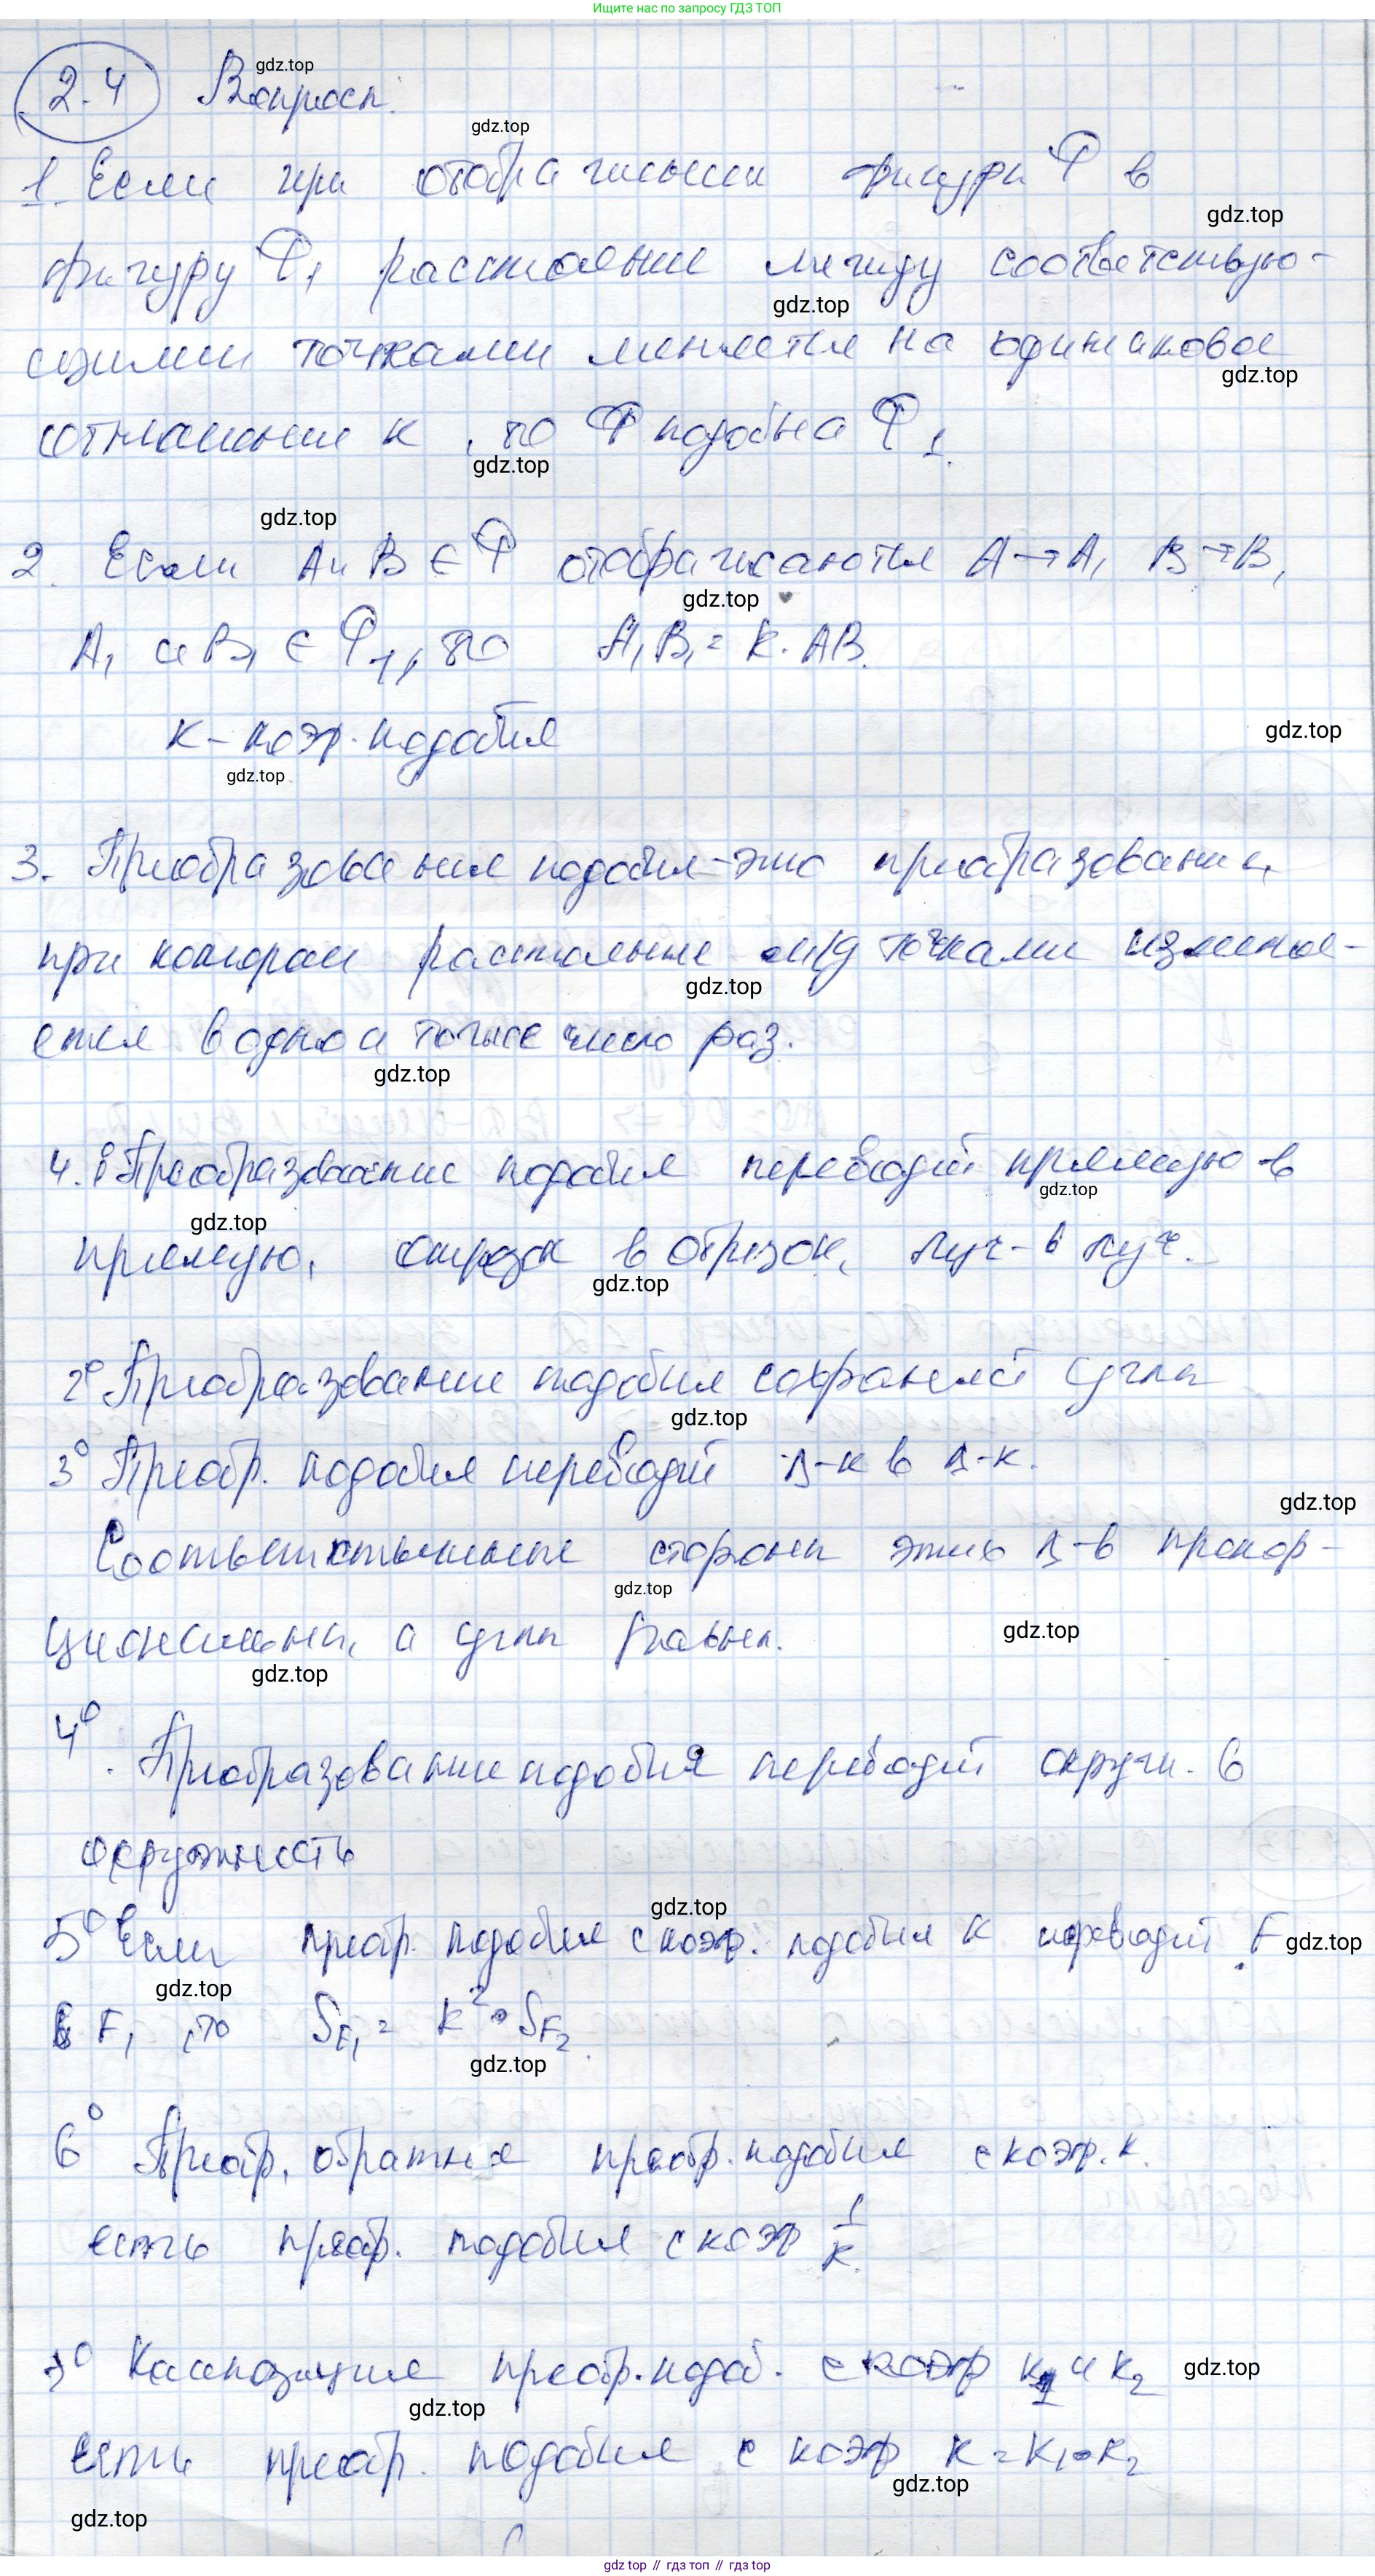 Ищите нас по запросу ГДЗ ТОП
2.4 Вопросы.
1. Если при отображении фигуры Ф в
фигуру Ф₁ расстояние между соответствую-
щими точками меняется на одинаковое
отношение k, то Ф подобна Ф₁.
2. Если A и B ∈ Ф отображаются A → A₁ B → B₁
A₁ и B₁ ∈ Ф₁, то A₁B₁ = k · AB.
k - коэф. подобия
3. Преобразование подобия - это преобразование,
при котором расстояние м/д точками изменя-
ется в одно и тоже число раз.
4. 1⁰ Преобразование подобия переводит прямую в
прямую, отрезок в отрезок, луч - в луч.
2⁰ Преобразование подобия сохраняет углы
3⁰ Преобр. подобия переводит Δ-к в Δ-к.
Соответственные стороны этих Δ-в пропор-
циональны, а углы равны.
4⁰. Преобразование подобия переводит окружн. в
окружность
5⁰ Если преобр. подобия с коэф. подобия k переводит F
в F₁, то S_F₁ = k² · S_F₂.
6⁰ Преобр. обратное преобр. подобия с коэф. k.
есть преобр. подобия с коэф 1/k.
7⁰ Композиция преобр. подоб. с коэф k₁ и k₂
есть преобр. подобия с коэф k = k₁ · k₂
gdz.top // гдз топ // gdz.top